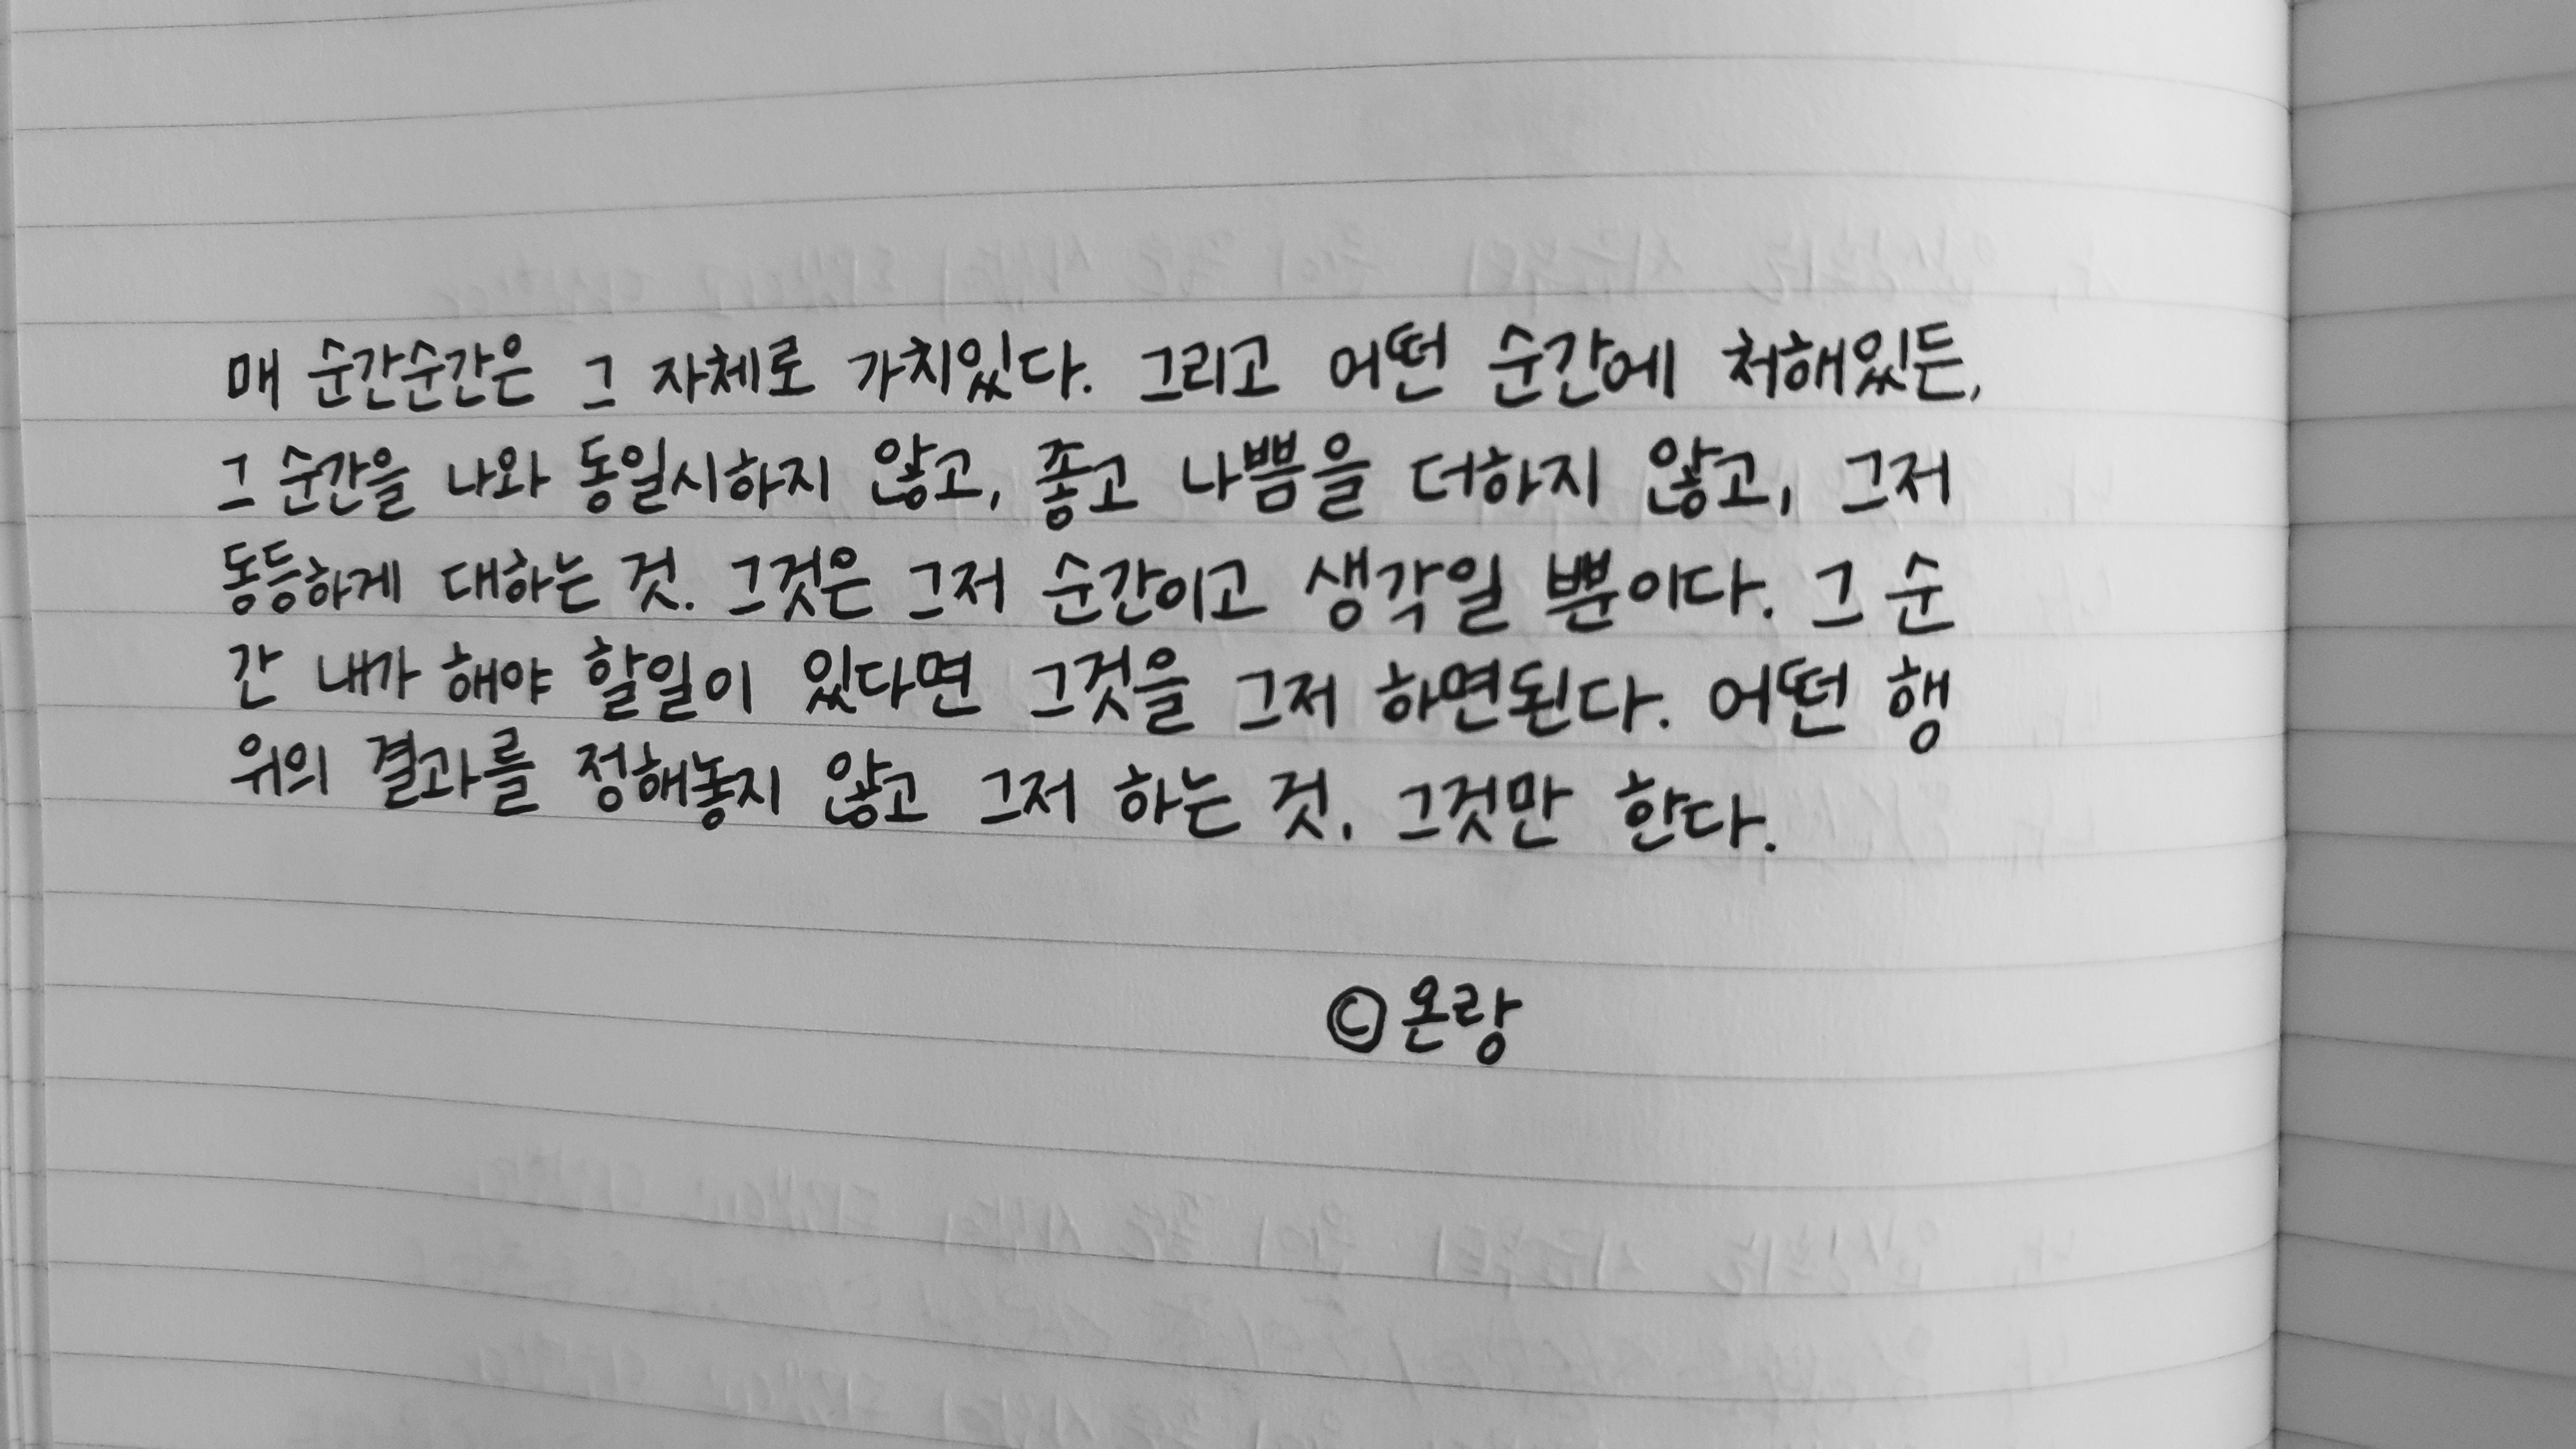 매 순간순간은 그 자체로 가치있다. 그리고 어떤 순간에 처해있든,
그 순간을 나와 동일시하지 않고, 좋고 나쁨을 더하지 않고, 그저
동등하게 대하는 것. 그것은 그저 순간이고 생각일 뿐이다. 그 순
간 내가 해야 할일이 있다면 그것을 그저 하면된다. 어떤 행
위의 결과를 정해놓지 않고 그저 하는 것. 그것만 한다.
©온랑